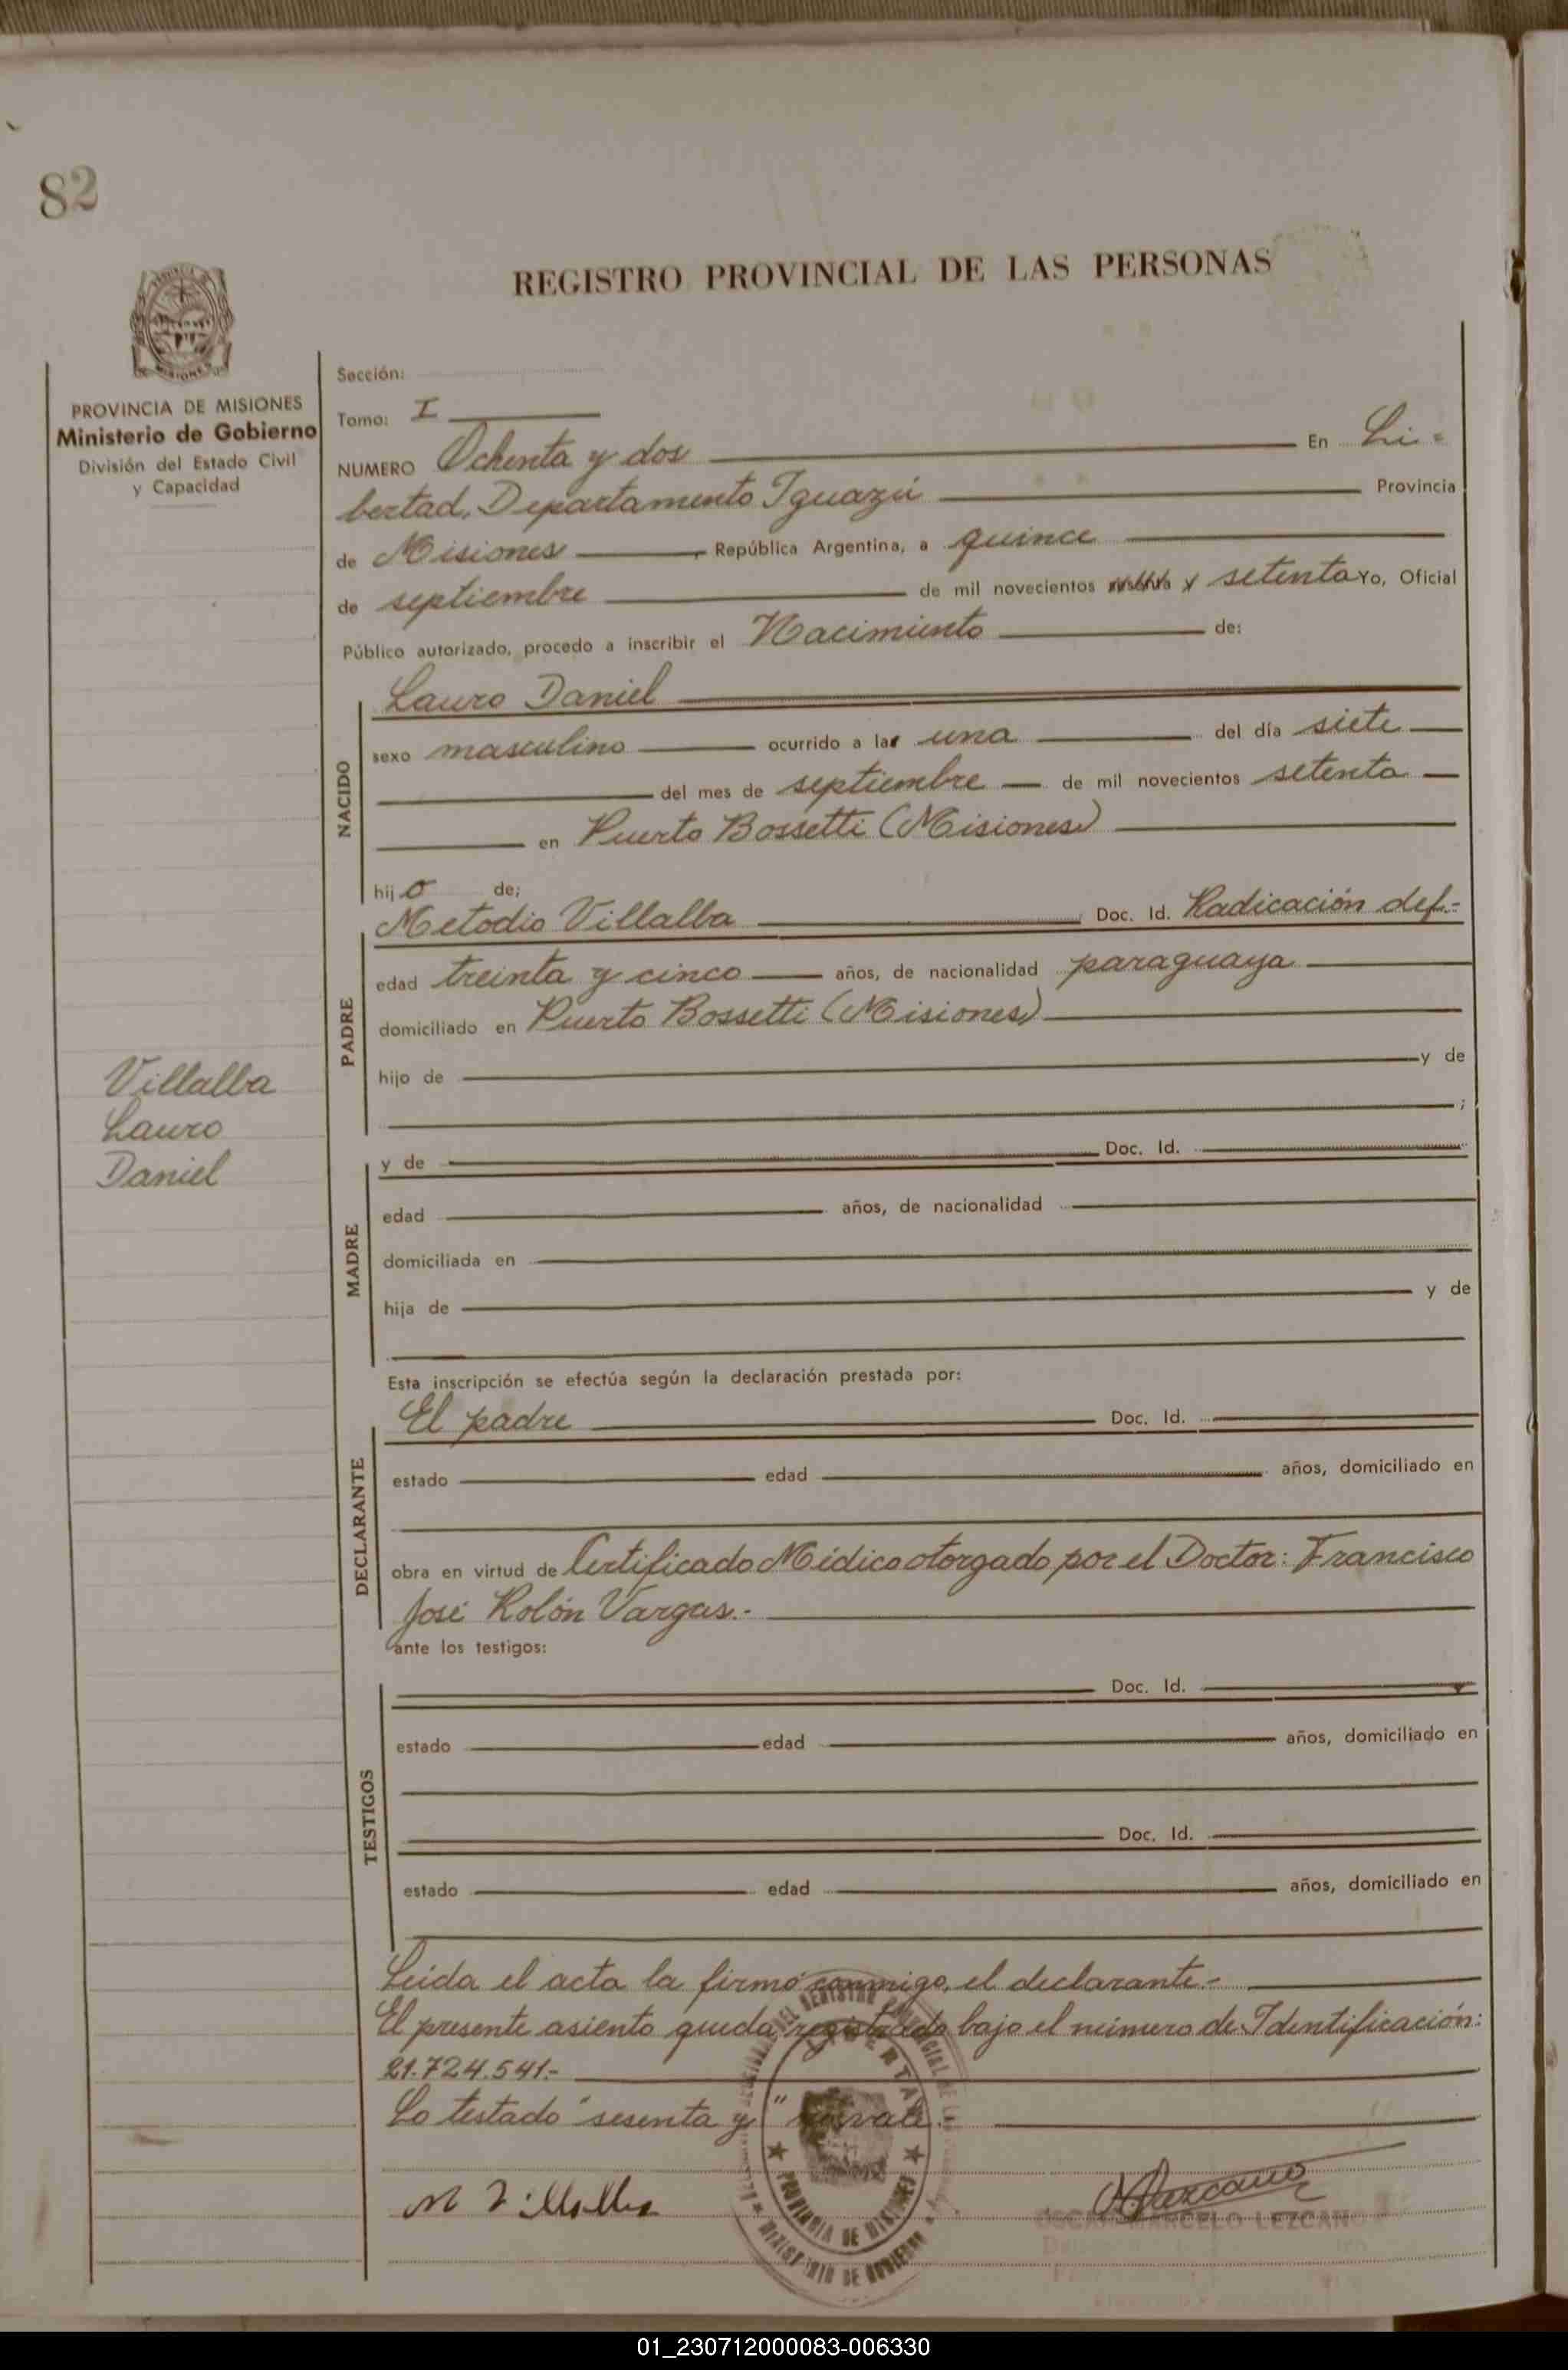 82
REGISTRO PROVINCIAL DE LAS PERSONAS
MISIONES
PROVINCIA DE MISIONES
Ministerio de Gobierno
División del Estado Civil
y Capacidad
Sección:
Tomo: I
NUMERO Ochenta y dos En Li-
bertad, Departamento Iguazú Provincia
de Misiones, República Argentina, a quince
de septiembre de mil novecientos sesenta y setenta Yo, Oficial
Público autorizado, procedo a inscribir el Nacimiento de:
NACIDO
Lauro Daniel
sexo masculino ocurrido a la una del día siete
del mes de septiembre de mil novecientos setenta
en Puerto Bossetti (Misiones)
hijo de;
PADRE
Metodio Villalba Doc. Id. Radicación def.-
edad treinta y cinco años, de nacionalidad paraguaya
domiciliado en Puerto Bossetti (Misiones)
hijo de y de
;
Villalba
Lauro
Daniel
MADRE
y de Doc. Id.
edad años, de nacionalidad
domiciliada en
hija de y de
Esta inscripción se efectúa según la declaración prestada por:
DECLARANTE
El padre Doc. Id.
estado edad años, domiciliado en
obra en virtud de Certificado Médico otorgado por el Doctor: Francisco
José Rolón Vargas.-
ante los testigos:
TESTIGOS
Doc. Id.
estado edad años, domiciliado en
Doc. Id.
estado edad años, domiciliado en
Leida el acta la firmó conmigo, el declarante.-
El presente asiento queda registrado bajo el número de Identificación:
21.724.541.-
Lo testado "sesenta y" no vale.-
M Villalba
OSCAR MARCELO LEZCANO
LIBERTAD
PROVINCIA DE MISIONES
MINISTERIO DE GOBIERNO
01_230712000083-006330